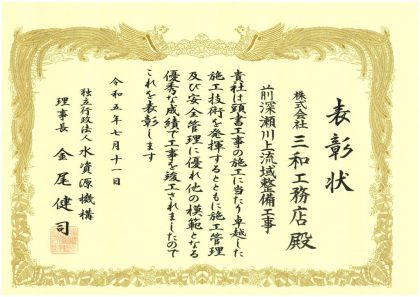 表彰状
株式会社 三和工務店 殿
前深瀬川上流域整備工事
貴社は頭書工事の施工に当たり卓越した
施工技術を発揮するとともに施工管理
及び安全管理に優れ他の模範となる
優秀な成績で工事を竣工されましたので
これを表彰します
令和五年七月十一日
独立行政法人 水資源機構
理事長 金尾健司